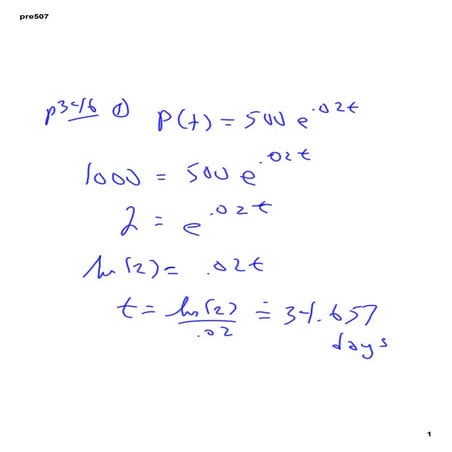 pre507
p346 ① P(t) = 500 e^.02t
1000 = 500 e^.02t
2 = e^.02t
ln(2) = .02t
t = ln(2)/.02 ≐ 34.657
days
1